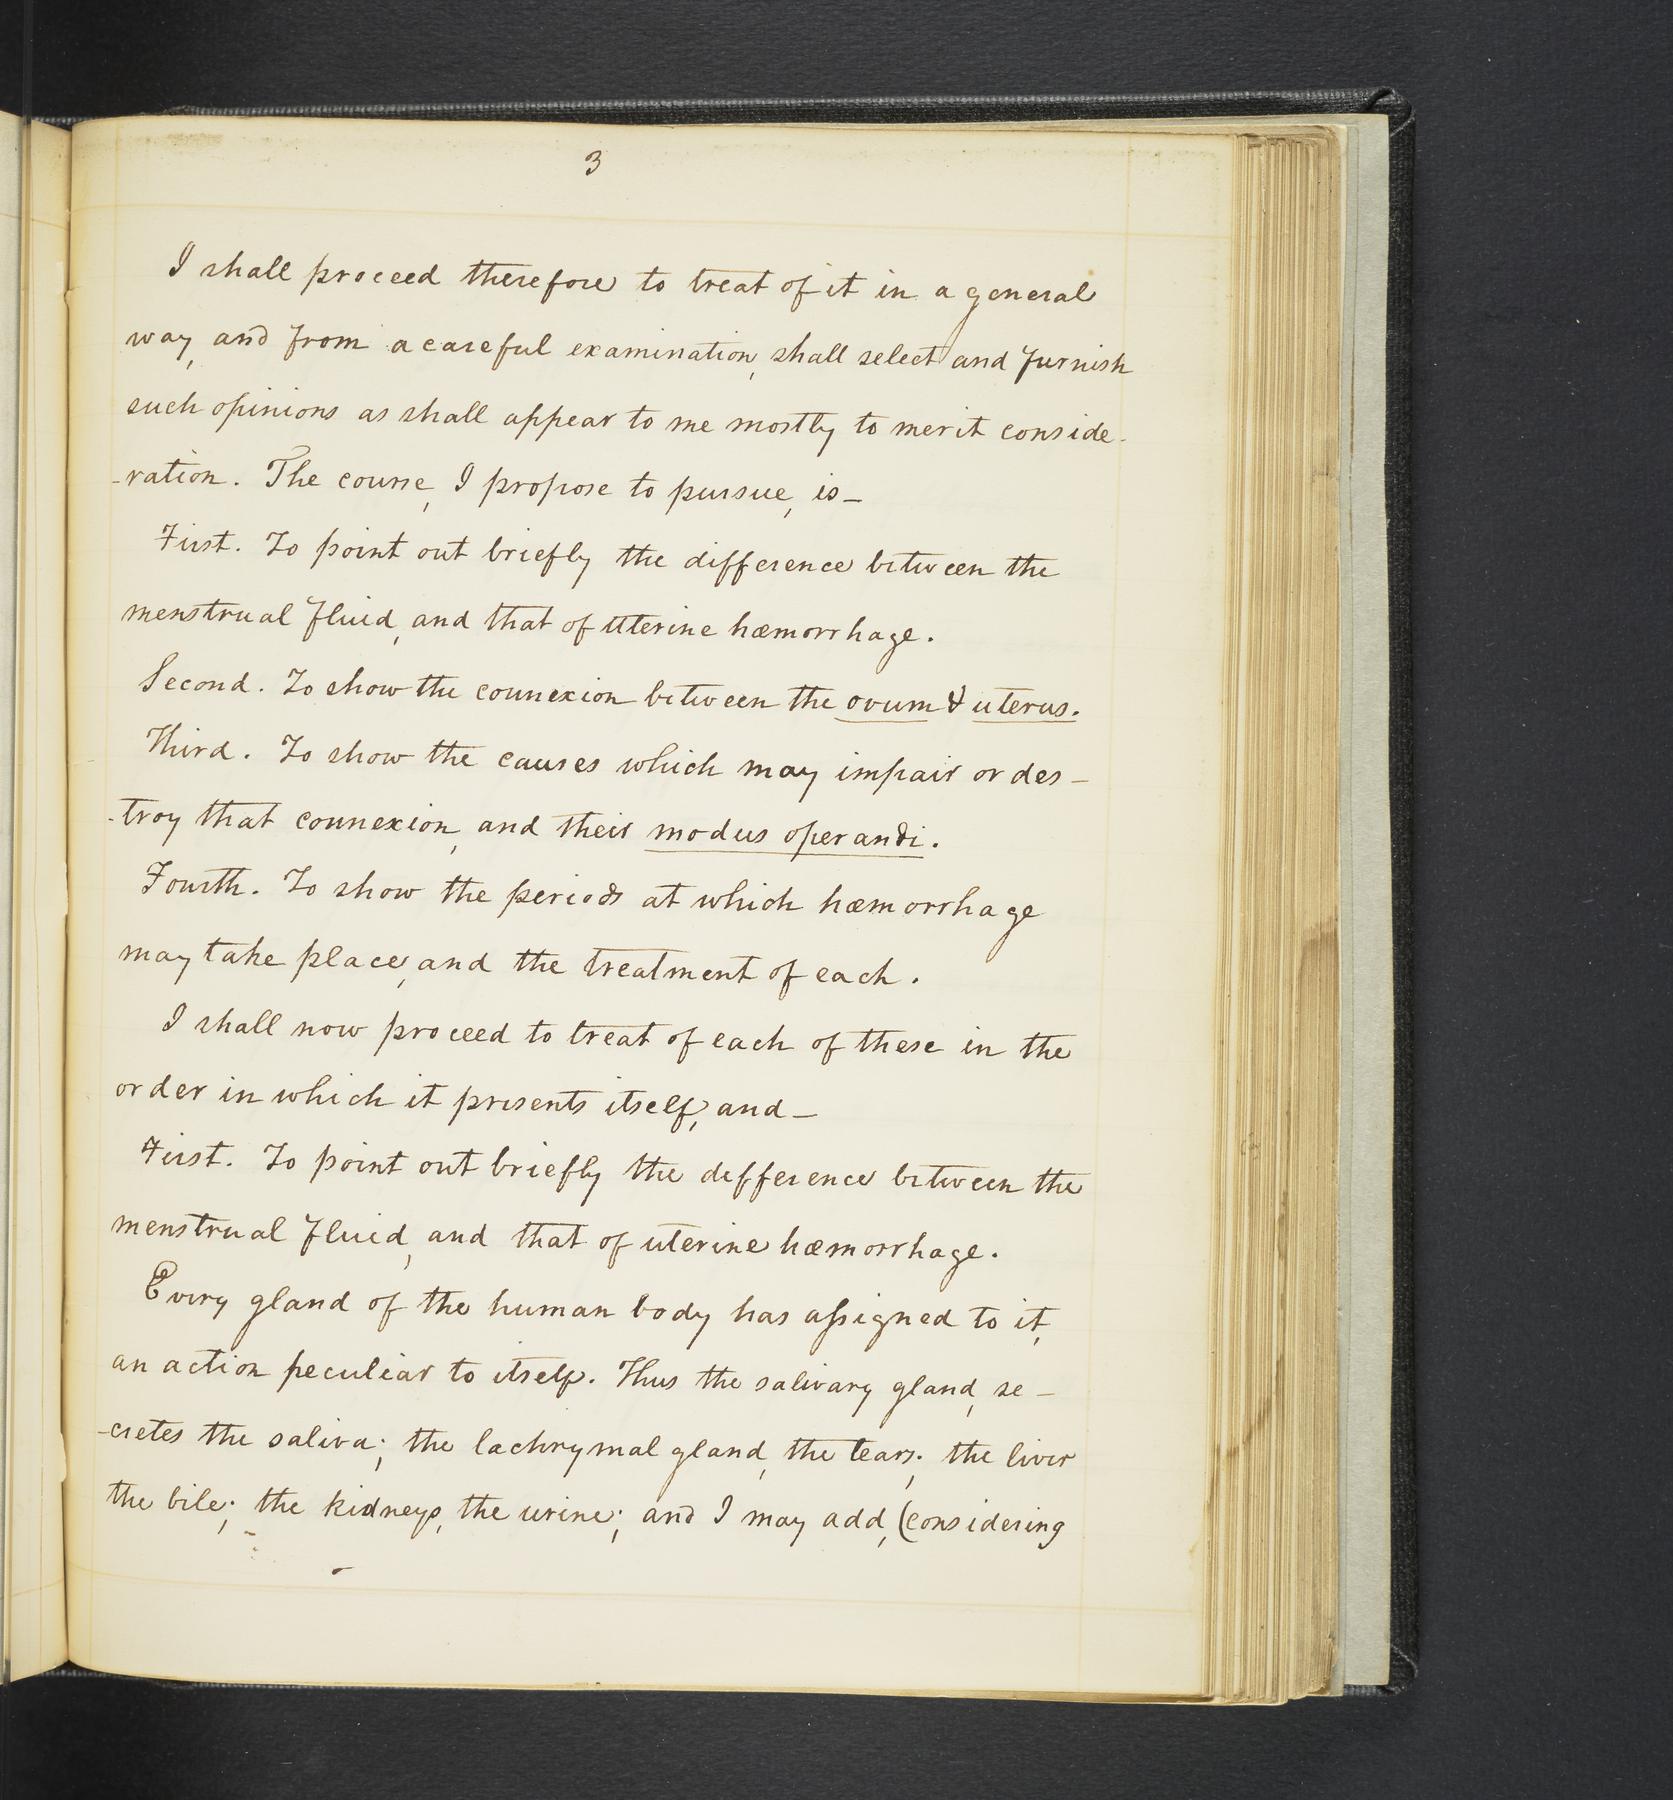 3
I shall proceed therefore to treat of it in a general
way, and from a careful examination, shall select and furnish
such opinions as shall appear to me mostly to merit conside-
-ration. The course, I propose to pursue, is—
First. To point out briefly the difference between the
menstrual fluid, and that of uterine hæmorrhage.
Second. To show the connexion between the ovum & uterus.
Third. To show the causes which may impair or des-
-troy that connexion, and their modus operandi.
Fourth. To show the periods at which hæmorrhage
may take place, and the treatment of each.
I shall now proceed to treat of each of these in the
order in which it presents itself, and—
First. To point out briefly the difference between the
menstrual fluid, and that of uterine hæmorrhage.
Every gland of the human body has aſsigned to it,
an action peculiar to itself. Thus the salivary gland, se-
-cretes the saliva; the lachrymal gland, the tears; the liver
the bile; the kidneys, the urine; and I may add, (considering